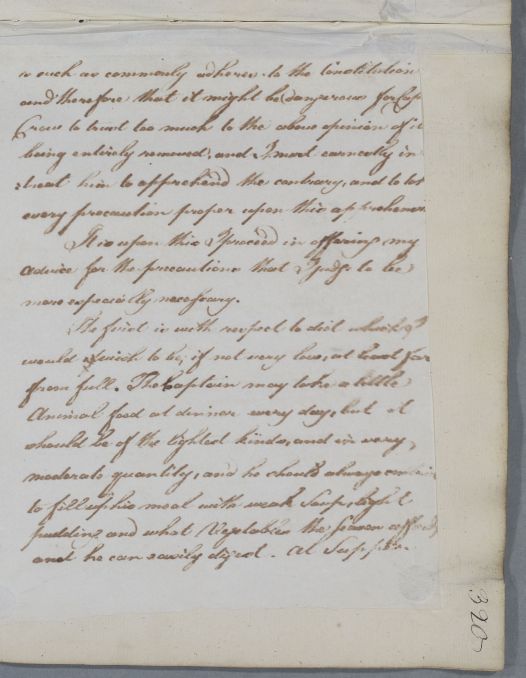 is such as commonly adheres to the Constitution
and therefore that it might be dangerous for Cap
Craw to trust too much to the above opinion of it
being entirely removed, and I most earnestly in
:treat him to apprehend the contrary, and to
every precaution proper upon this apprehension
It is upon this I proceed in offering my
advice for the precautions that I judge to be
more especially necessary.
The first is with respect to diet which I
would wish to be, if not very low, at least far
from full. The Captain may take a little
Animal food at dinner every day, but it
should be of the lightest kinds, and in very
moderate quantity, and he should always
to fill up his meal with weak Soup, light
pudding and what Vegetables the season affords
and he can easily digest. At Supper
320